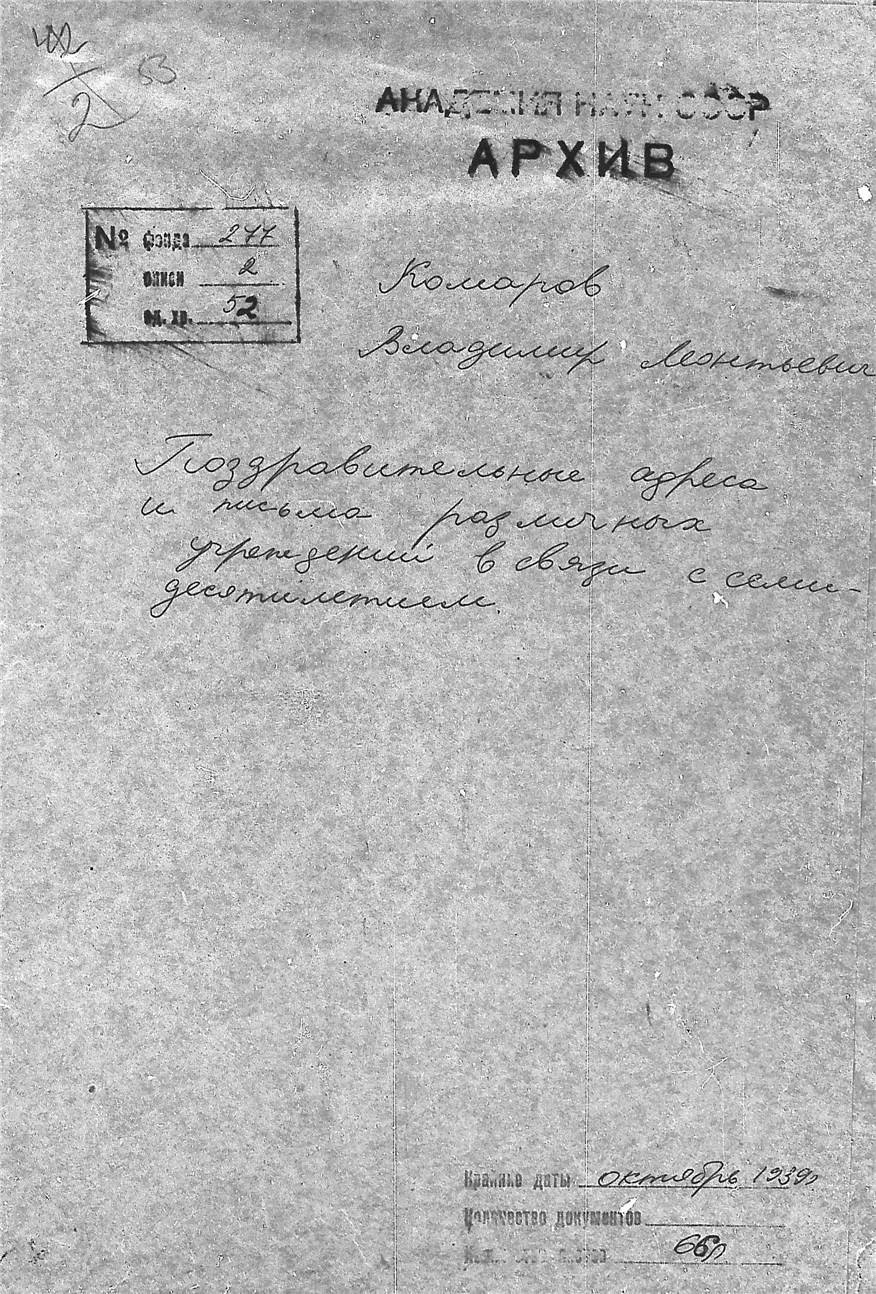 53
2
АКАДЕМИЯ НАУК СССР
АРХИВ
№ фонда 277
описи 2
ед. хр. 52
Комаров
Владимир Леонтьевич
Поздравительные адреса
и письма различных
учреждений в связи с семи-
десятилетием.
Крайние даты октябрь 1939г
Количество документов
66л